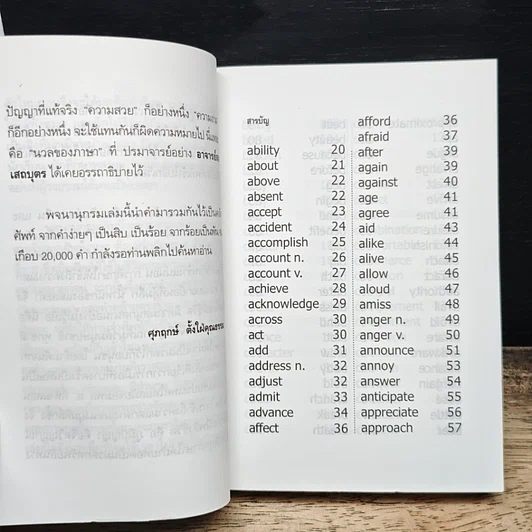 ปัญญาที่แท้จริง "ความสวย" ก็อย่างหนึ่ง "ความงาม
ก็อีกอย่างหนึ่ง จะใช้แทนกันก็ผิดความหมายไป
คือ "นวลของภาษา" ที่ ปรมาจารย์อย่าง
เสถบุตร ได้เคยอรรถาธิบายไว้
พจนานุกรมเล่มนี้นำคำมารวมกันไว้เป็น
ศัพท์ จากคำง่ายๆ เป็นสิบ เป็นร้อย จากร้อยเป็น
เกือบ 20,000 คำ กำลังรอท่านพลิกไปค้นหาอ่าน
ศุภฤกษ์ ตั้งใฝ่คุณธรรม
สารบัญ
ability 20
about 21
above 22
absent 22
accept 23
accident 24
accomplish 25
account n. 26
account v. 27
achieve 28
acknowledge 29
across 30
act 30
add 31
address n. 32
adjust 32
admit 33
advance 34
affect 36
afford 36
afraid 37
after 39
again 39
against 40
age 41
agree 41
aid 43
alike 44
alive 45
allow 46
aloud 47
amiss 48
anger n. 49
anger v. 50
announce 51
annoy 53
answer 54
anticipate 55
appreciate 56
approach 57